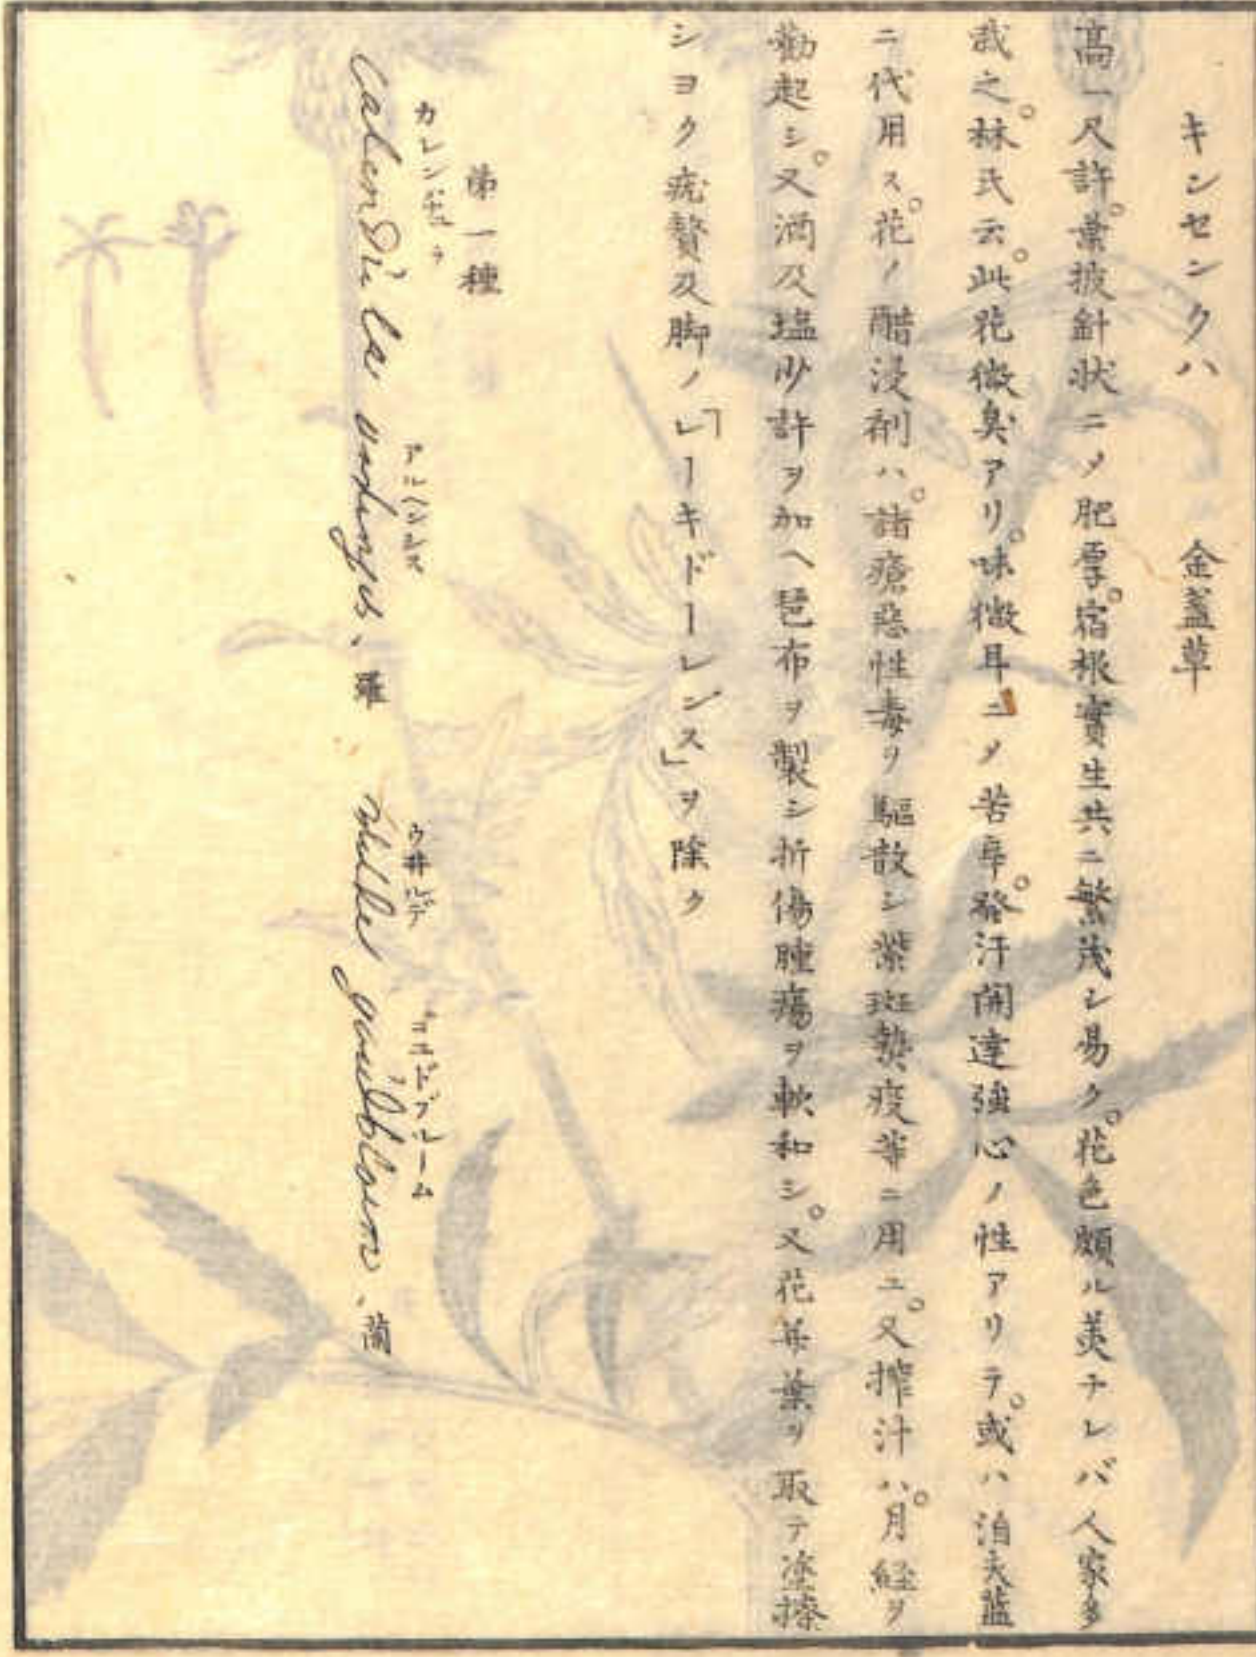 キンセンクハ 金盞草
高一尺許。葉披針状ニメ肥厚。宿根實生共ニ繁茂シ易ク。花色頗ル美ナレバ人家多
栽之。林氏云。此花微臭アリ。味微耳ニメ苦辛。發汗開達強心ノ性アリテ。或ハ泊夫藍
ニ代用ス。花ノ醋浸剤ハ。諸瘡惡性毒ヲ驅散シ紫斑熱疫等ニ用ユ。又搾汁ハ。月経ヲ
勸起シ。又酒及塩少許ヲ加ヘ琶布ヲ製シ折傷腫瘍ヲ軟和シ。又花并葉ヲ取テ塗擦
シヨク疣贅及脚ノ「レーキドーレンス」ヲ除ク
第一種
カレンデュラ アルヘンシス ウ井ルデ ゴユドブルーム
Calendula 羅 Wilde goudbloem. 蘭